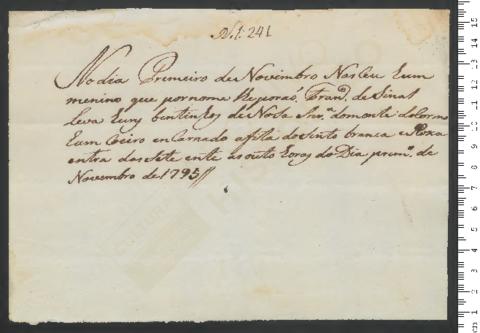 N.º 241
No dia Premeiro de Novembro Nasceu Eum
menino que por nome Reporaõ Fran.co de Sinal
leva Euns bentinhos de Nosa Snr.ª do monte do Carmo
Eum Coeiro encarnado afita de sinto branca e Roxa
entra das sete ente as outo Eoras do Dia prem.º de
Novembro de 1795//